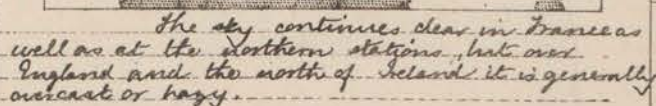 The sky continues clear in France as
well as at the northern stations, but over
England and the north of Ireland it is generally
overcast or hazy.